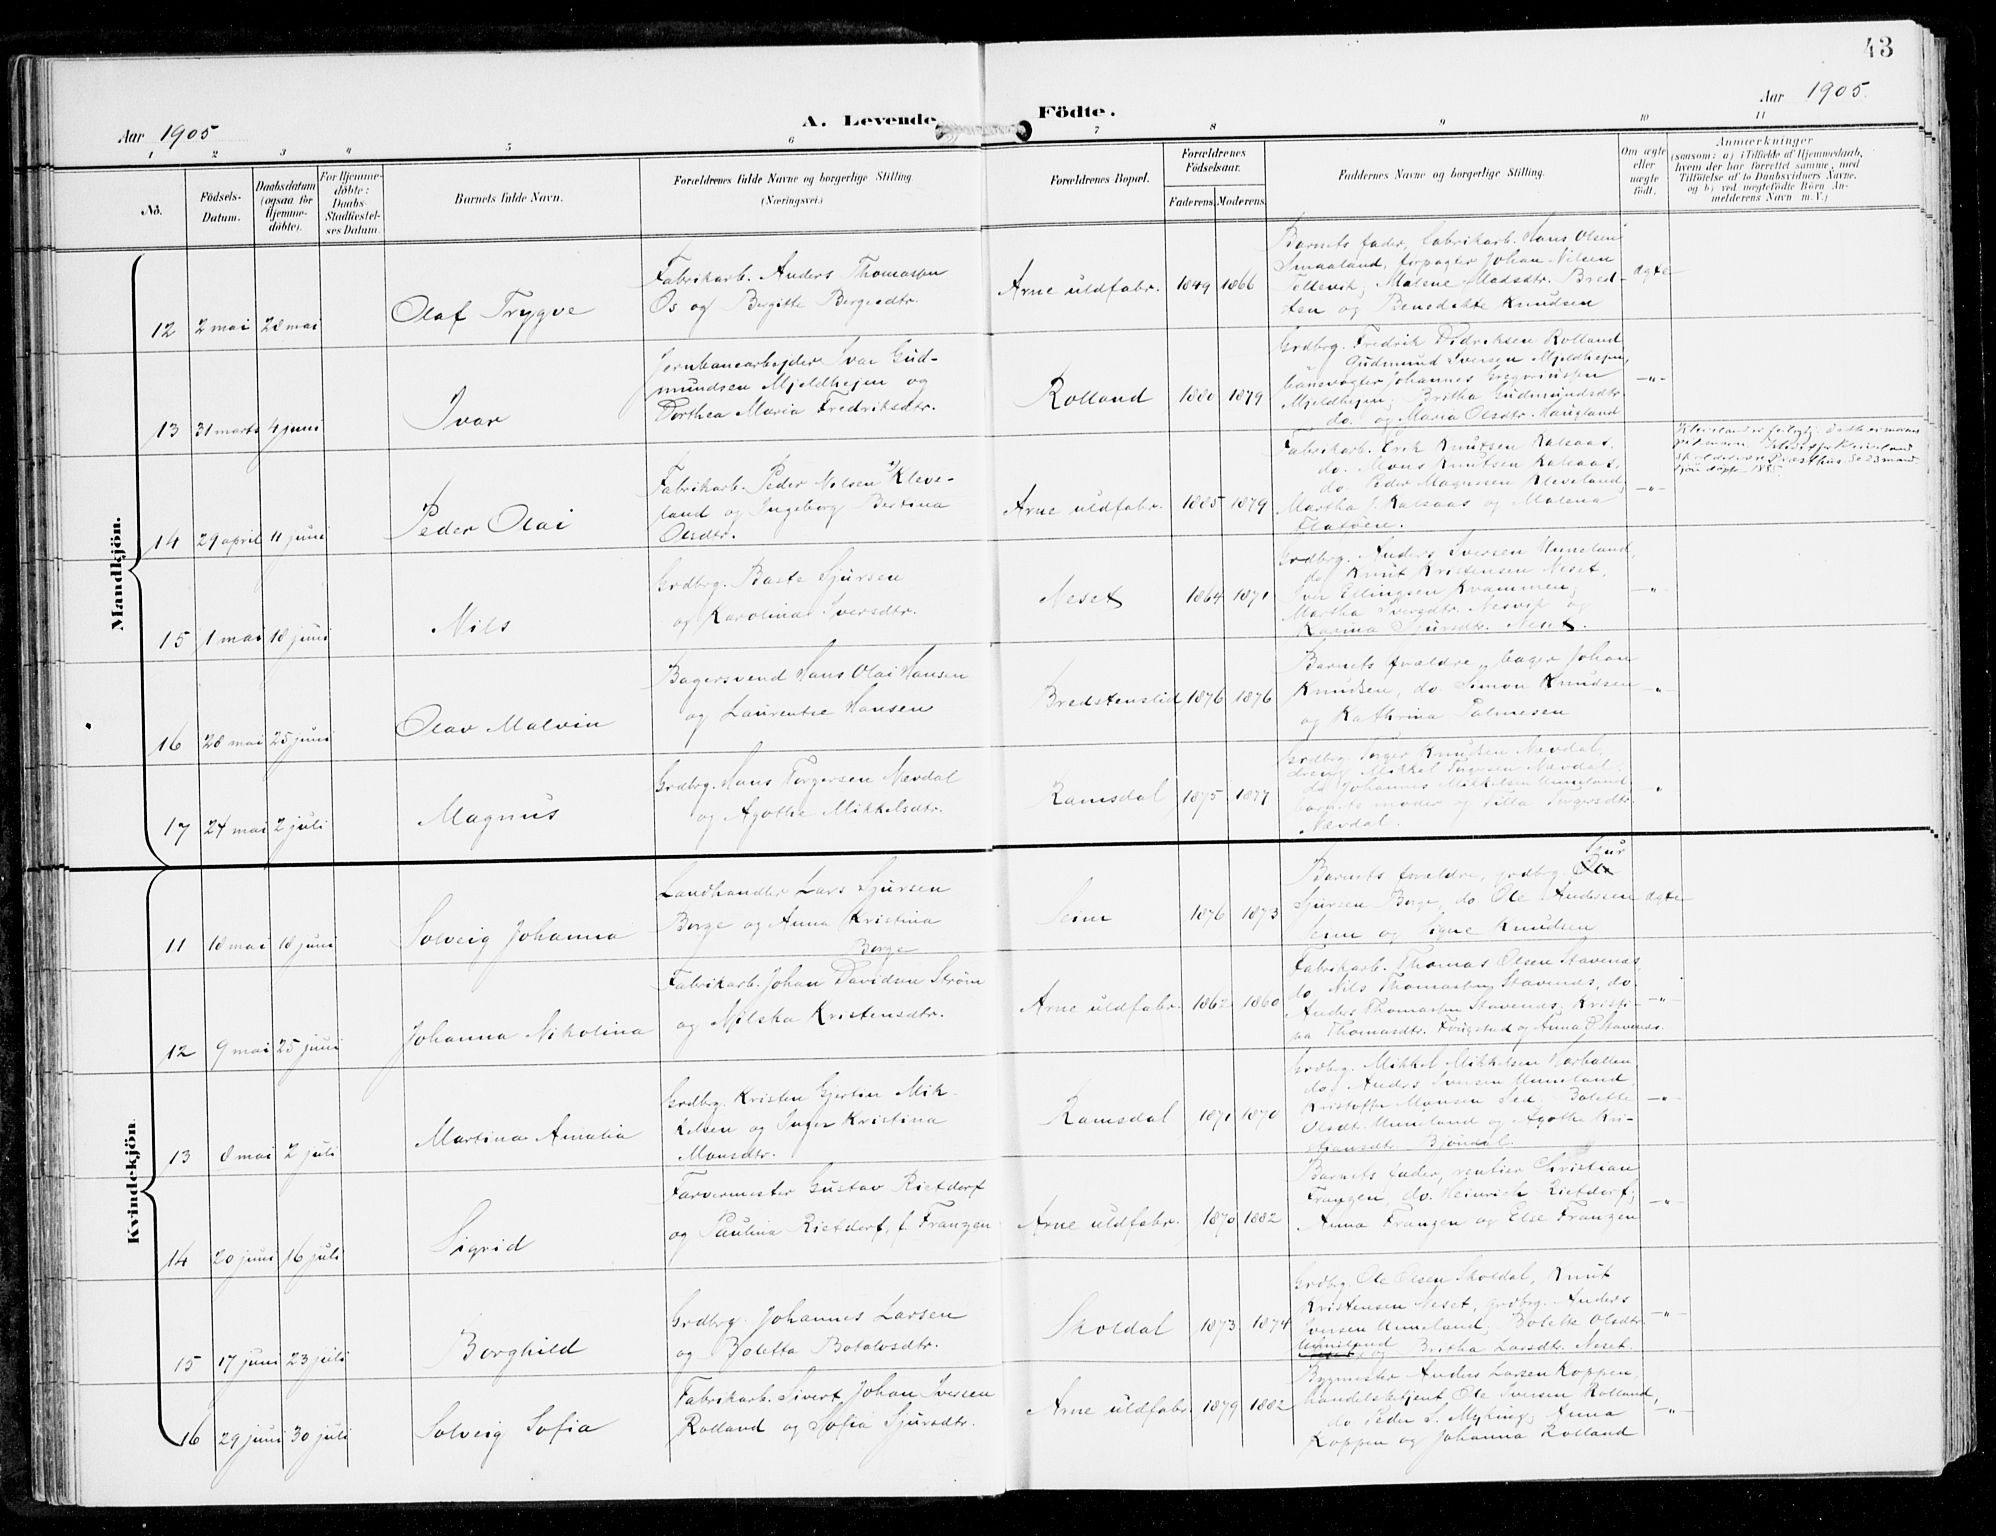 43
Aar 1905
A. Levende Födte.
Aar 1905.
1 2 3 4 5 6 7 8 9 10 11
No.
Födsels-Datum.
Daabsdatum (ogsaa for Hjemmedöbte).
For Hjemmedöbte: Daabs-Stadfæstelses Datum.
Barnets fulde Navn.
Forældrenes fulde Navne og borgerlige Stilling.
(Næringsvei.)
Forældrenes Bopæl.
Forældrenes Födselsaar.
Faderens. Moderens.
Faddernes Navne og borgerlige Stilling.
Om ægte eller uægte födt.
Anmærkninger
(saasom: a) i Tilfælde af Hjemmedaab, hvem der har forrettet samme, med Tilföielse af to Daabsvidners Navne, og b) ved uægtefödte Börn Anmelderens Navn m. V.)
Mandkjön.
12 2 mai 28 mai
Olaf Trygve
Fabrikarb. Anders Thomassen
Os og Bergitte Bergesdtr.
Arne uldfabr. 1849 1866
Barnets fader, fabrikarb. Hans Olsen
Smaaland, forpagter Johan Nilsen
Tellevik, Malene Madsdtr. Bred-
sten og Benedikte Knudsen
ægte
13 31 marts 4 juni
Ivar
Jernbanearbejder Ivar Gud-
mundsen Mjeldhejen og
Dorthea Maria Fredriksdtr.
Rolland 1880 1879
Grdbrg. Fredrik Didriksen Rolland
Gudmund Iversen Mjeldhejen,
banevogter Johannes Gregoriussen
Mjeldhejen, Britha Gudmundsdtr.
do. og Maria Olsdtr. Haugland
-"-
14 29 april 11 juni
Peder Olai
Fabrikarb. Peder Nilsen Kleve-
land og Ingeborg Bertina
Olsdtr.
Arne uldfabr. 1885 1879
Fabrikarb. Erik Knutsen Kalsaas.
do. Mons Knutsen Kalsaas.
do. Peder Magnesen Kleveland,
Martha J. Kalsaas og Malena
-"-
15 1 mai 18 juni
Nils
Grdbrg. Baste Sjursen
og Karolina Iversdtr.
Neset 1864 1871
Grdbrg. Anders Iversen Unneland,
do. Knut Kristensen Neset,
Iver Ellingsen Kvammen,
Martha Iversdtr. Nesvik og
Karina Sjursdtr. Neset.
-"-
16 28 mai 25 juni
Olav Malvin
Bagersvend Hans Olai Hansen
og Laurentse Hansen
Bredstenslid 1876 1876
Barnets forældre, bager Johan
Knudsen, do. Simon Knudsen
og Kathrina Palmesen
-"-
17 24 mai 2 juli
Magnus
Grdbrg. Hans Torgersen Nævdal
og Agothe Mikkelsdtr.
Ramsdal 1875 1877
Grdbrg. Torger Knudsen Nævdal,
Mikkel Torgersen Nævdal,
do. Johannes Mikkelsen Unneland
barnets moder og Torgersdtr.
Nævdal.
"
Kvindekjön.
11 18 mai 18 juni
Solveig Johanna
Landhandler Lars Sjursen
Borge og Anna Kristina
Borge
Seim 1876 1873
Sjur
Barnets forældre, grdbrg. Ole
Sjursen Borge, do Ole Andersen
Seim og Signe Knudsen
ægte
12 9 mai 25 juni
Johanna Nikolina
Fabrikarb. Johan Davidsen Ström
og Milska Kristensdtr.
Arne uldfabr. 1862 1860
Fabrikarb. Thomas Olsen Stavenas,
do. Nils Thomassen Stavenas, do.
Anders Thomassen Stavenas, Kristi-
na Thomasdtr. og Anna P. Stavenas.
-"-
13 8 mai 2 juli
Martina Amalia
Grdbrg. Kristen Gjertin Mik-
kelsen og Inger Kristina
Monsdtr.
Ramsdal 1871 1870
Grdbrg. Mikkel Mikkelsen
do. Anders Iversen Unneland
Kristoffer Monsen Sed. Bolette
Olsdtr. Unneland og Agothe Kri-
stiansdtr. Bjöndal.
-"-
14 20 juni 16 juli
Sigrid
Farvermester Gustav Rietdorf
og Paulina Rietdorf, f. Franzen
Arne uldfabr. 1870 1882
Barnets fader, rentier Christian
Franzen, do. Heinrich Rietdorf,
Anna Franzen og Else Franzen
-"-
15 17 juni 23 juli
Borghild
Grdbrg. Johannes Larsen
og Boletta Botolvsdtr.
Skoldal 1873 1874
Grdbrg. Ole Olsen Skoldal, Knut
Kristensen Neset, grdbrg. Anders
Iversen Unneland, Bolette Olsdtr.
Unneland og Britha Larsdtr. Neset.
-"-
16 29 juni 30 juli
Solveig Sofia
Fabrikarb. Sivert Johan Iversen
Rolland og Sofia Sjursdtr.
Arne uldfabr. 1879 1882
Bygmester Anders Larsen Koppen,
Handelsbetjent Ole Iversen Rolland,
do Peder S. Myking, Anna
Koppen og Johanna Rolland
-"-